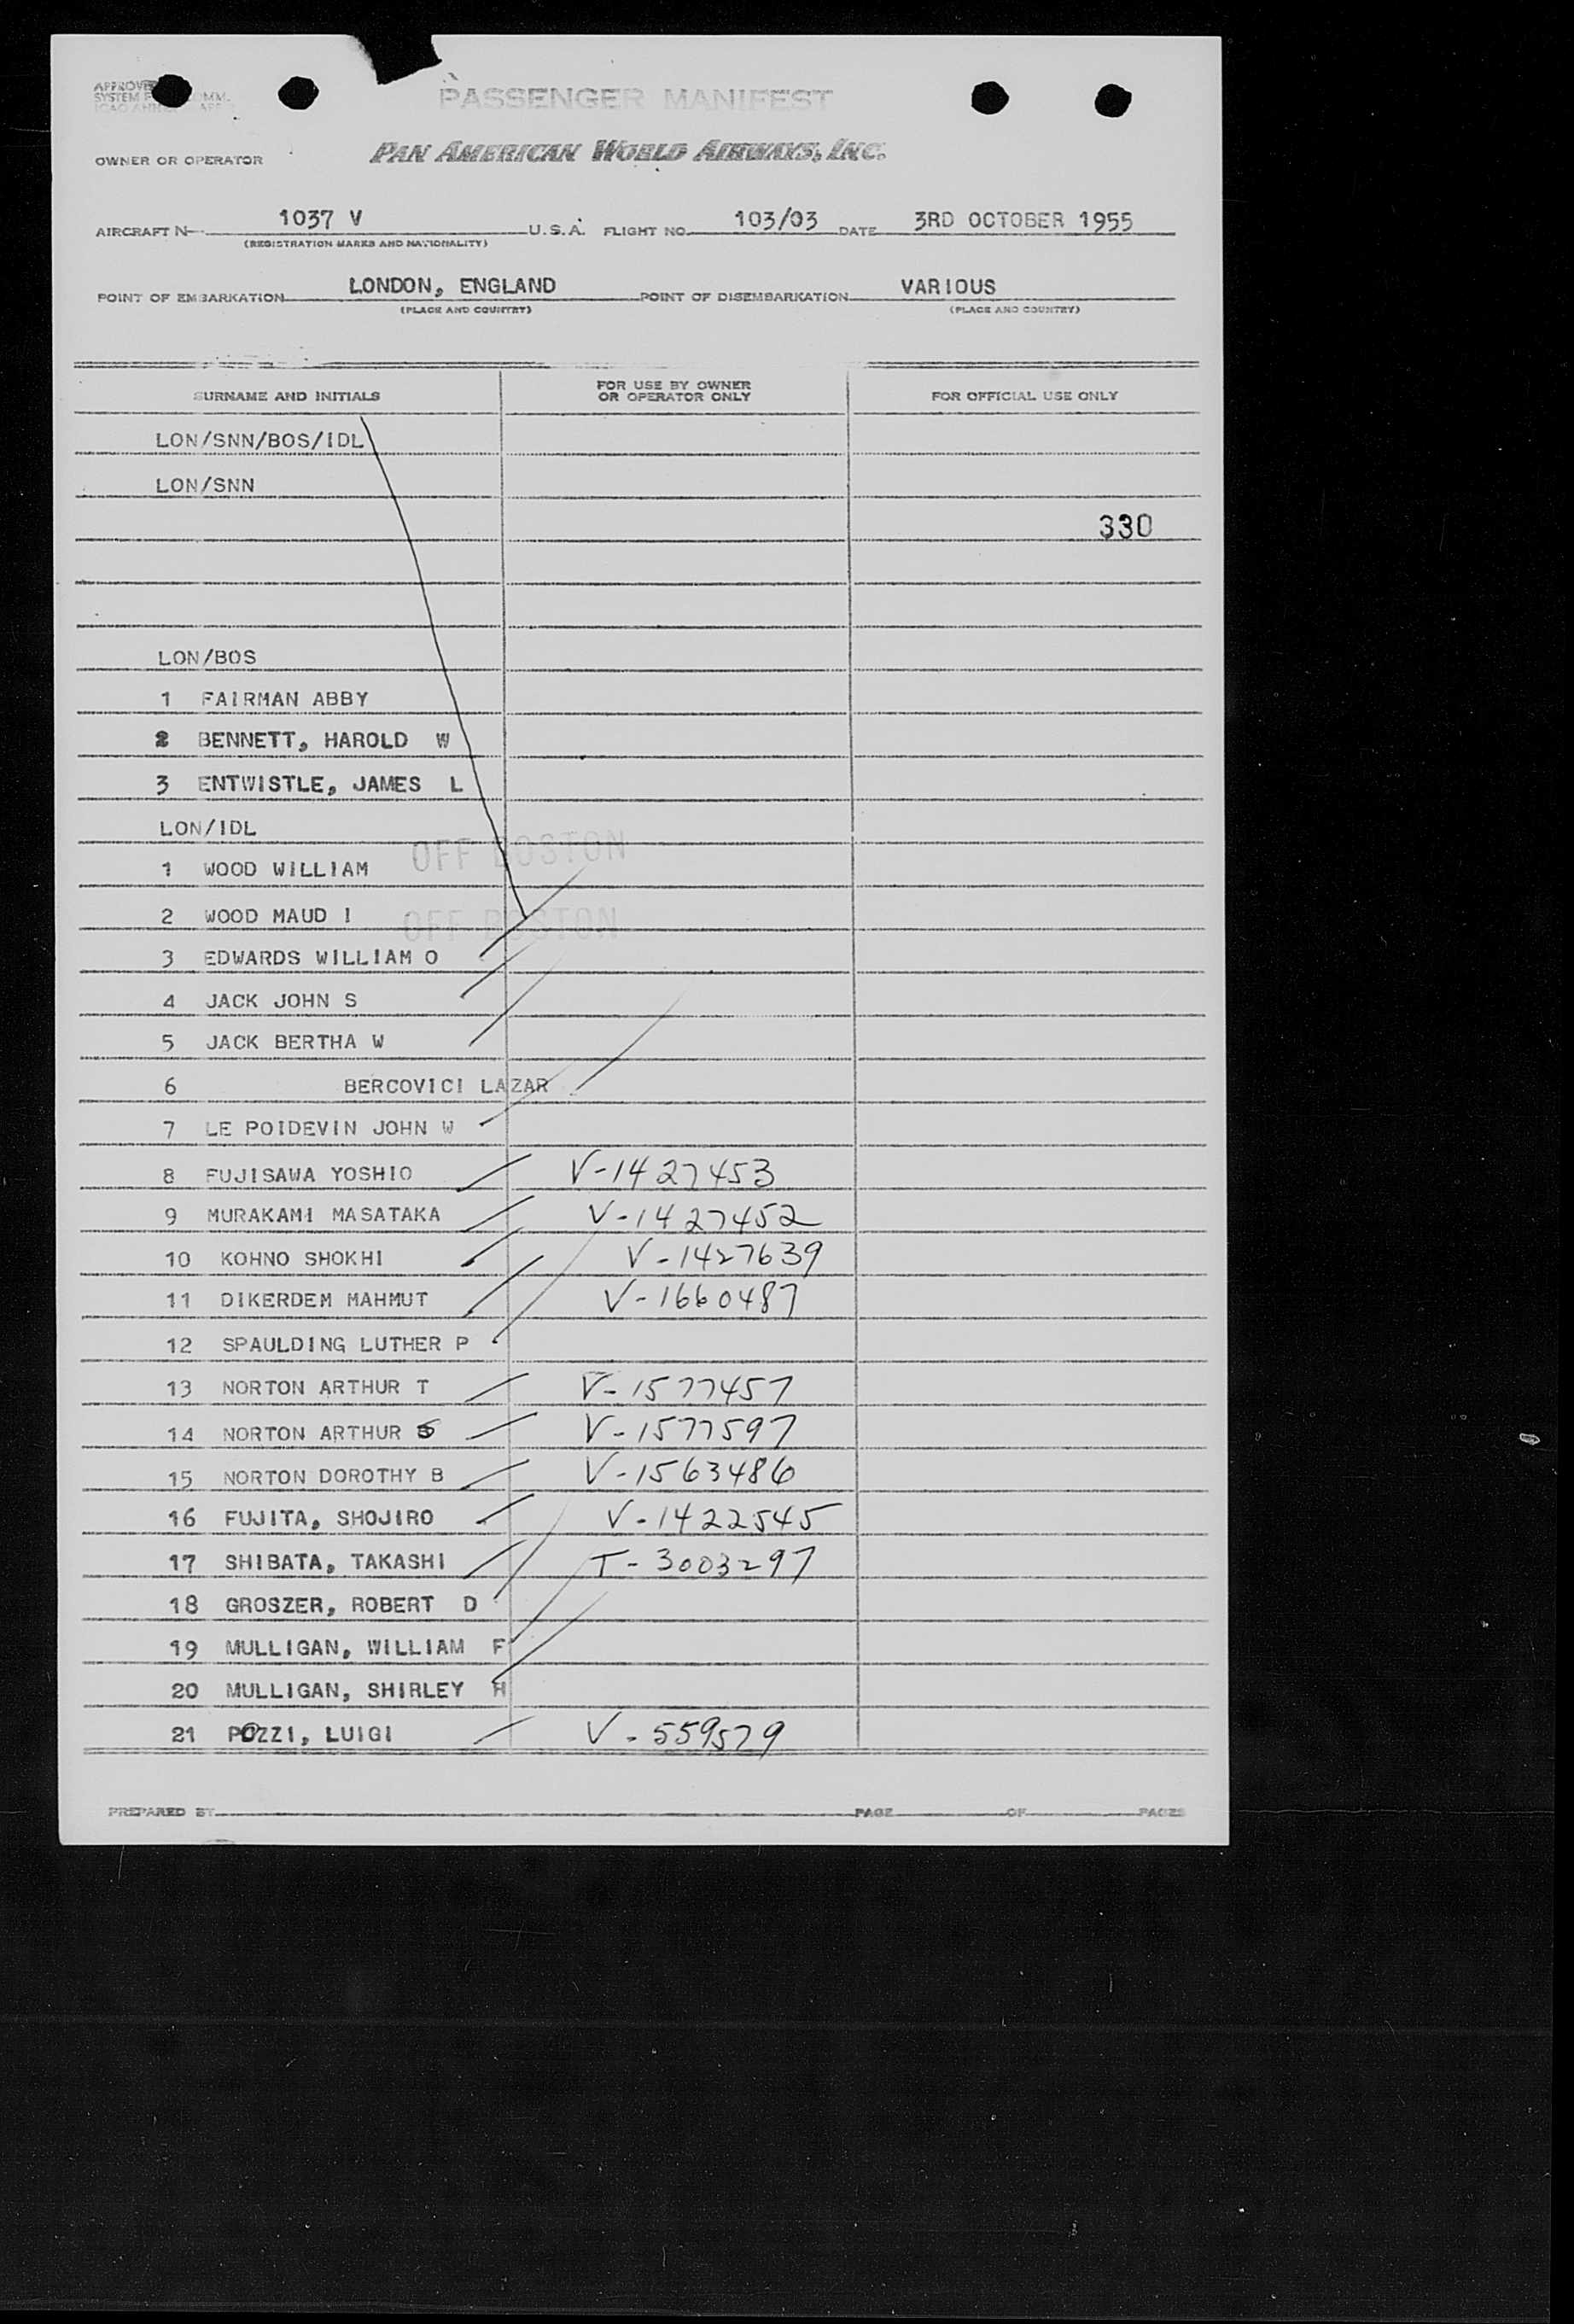 APPROVED
SYSTEM COMM.
PASSENGER MANIFEST
OWNER OR OPERATOR PAN AMERICAN WORLD AIRWAYS, INC.
AIRCRAFT N 1037 V U.S.A. FLIGHT NO. 103/03 DATE 3RD OCTOBER 1955
(REGISTRATION MARKS AND NATIONALITY)
POINT OF EMBARKATION LONDON, ENGLAND POINT OF DISEMBARKATION VARIOUS
(PLACE AND COUNTRY) (PLACE AND COUNTRY)
SURNAME AND INITIALS FOR USE BY OWNER OR OPERATOR ONLY FOR OFFICIAL USE ONLY
LON/SNN/BOS/IDL
LON/SNN
330
LON/BOS
1 FAIRMAN ABBY
2 BENNETT, HAROLD W
3 ENTWISTLE, JAMES L
LON/IDL
OFF BOSTON
1 WOOD WILLIAM
2 WOOD MAUD I OFF BOSTON
3 EDWARDS WILLIAM O
4 JACK JOHN S
5 JACK BERTHA W
6 BERCOVICI LAZAR
7 LE POIDEVIN JOHN W
8 FUJISAWA YOSHIO V-1427453
9 MURAKAMI MASATAKA V-1427452
10 KOHNO SHOKHI V-1427639
11 DIKERDEM MAHMUT V-1660487
12 SPAULDING LUTHER P
13 NORTON ARTHUR T V-1577457
14 NORTON ARTHUR S V-1577597
15 NORTON DOROTHY B V-1563486
16 FUJITA, SHOJIRO V-1422545
17 SHIBATA, TAKASHI T-3003297
18 GROSZER, ROBERT D
19 MULLIGAN, WILLIAM F
20 MULLIGAN, SHIRLEY H
21 POZZI, LUIGI V-559579
PREPARED BY PAGE OF PAGES